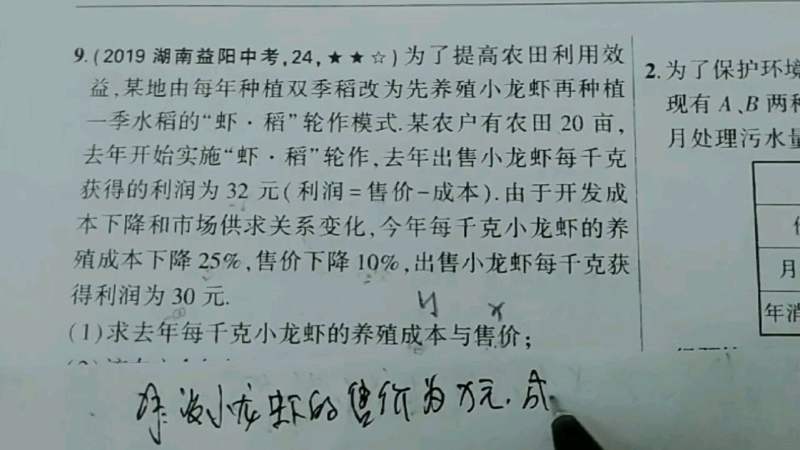 9.(2019 湖南益阳中考,24,★★☆)为了提高农田利用效
益,某地由每年种植双季稻改为先养殖小龙虾再种植
一季水稻的“虾·稻”轮作模式.某农户有农田 20 亩,
去年开始实施“虾·稻”轮作,去年出售小龙虾每千克
获得的利润为 32 元(利润=售价-成本).由于开发成
本下降和市场供求关系变化,今年每千克小龙虾的养
殖成本下降 25%,售价下降 10%,出售小龙虾每千克获
得利润为 30 元.
y x
(1)求去年每千克小龙虾的养殖成本与售价;
设小龙虾的售价为x元.成
2.为了保护环境
现有 A、B 两种
月处理污水量
月
年消